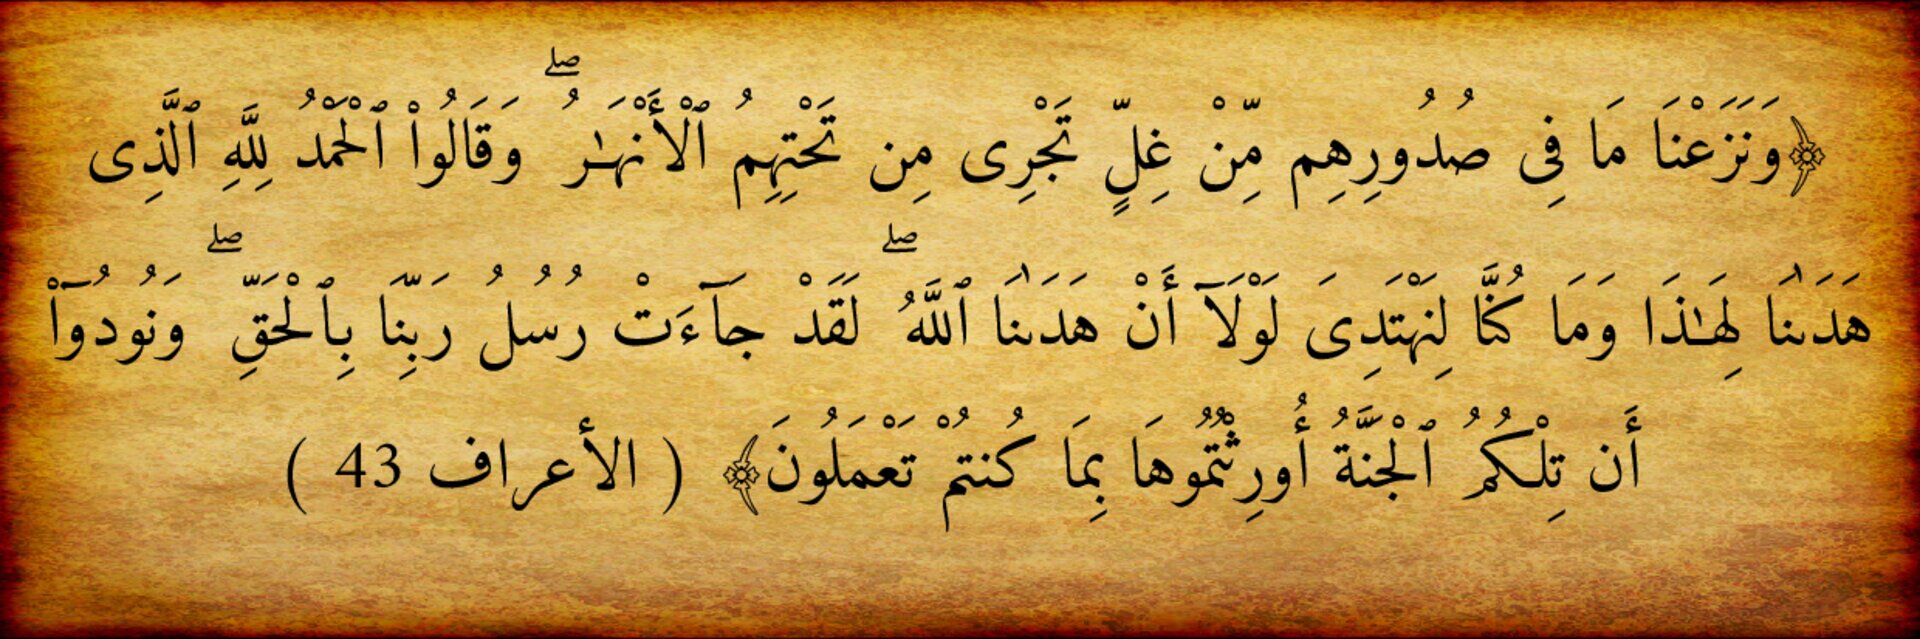 ﴿وَنَزَعْنَا مَا فِى صُدُورِهِم مِّنْ غِلٍّ تَجْرِى مِن تَحْتِهِمُ ٱلْأَنْهَـٰرُ ۖ وَقَالُوا۟ ٱلْحَمْدُ لِلَّهِ ٱلَّذِى
هَدَىٰنَا لِهَـٰذَا وَمَا كُنَّا لِنَهْتَدِىَ لَوْلَآ أَنْ هَدَىٰنَا ٱللَّهُ ۖ لَقَدْ جَآءَتْ رُسُلُ رَبِّنَا بِٱلْحَقِّ ۖ وَنُودُوٓا۟
أَن تِلْكُمُ ٱلْجَنَّةُ أُورِثْتُمُوهَا بِمَا كُنتُمْ تَعْمَلُونَ﴾ ( الأعراف 43 )